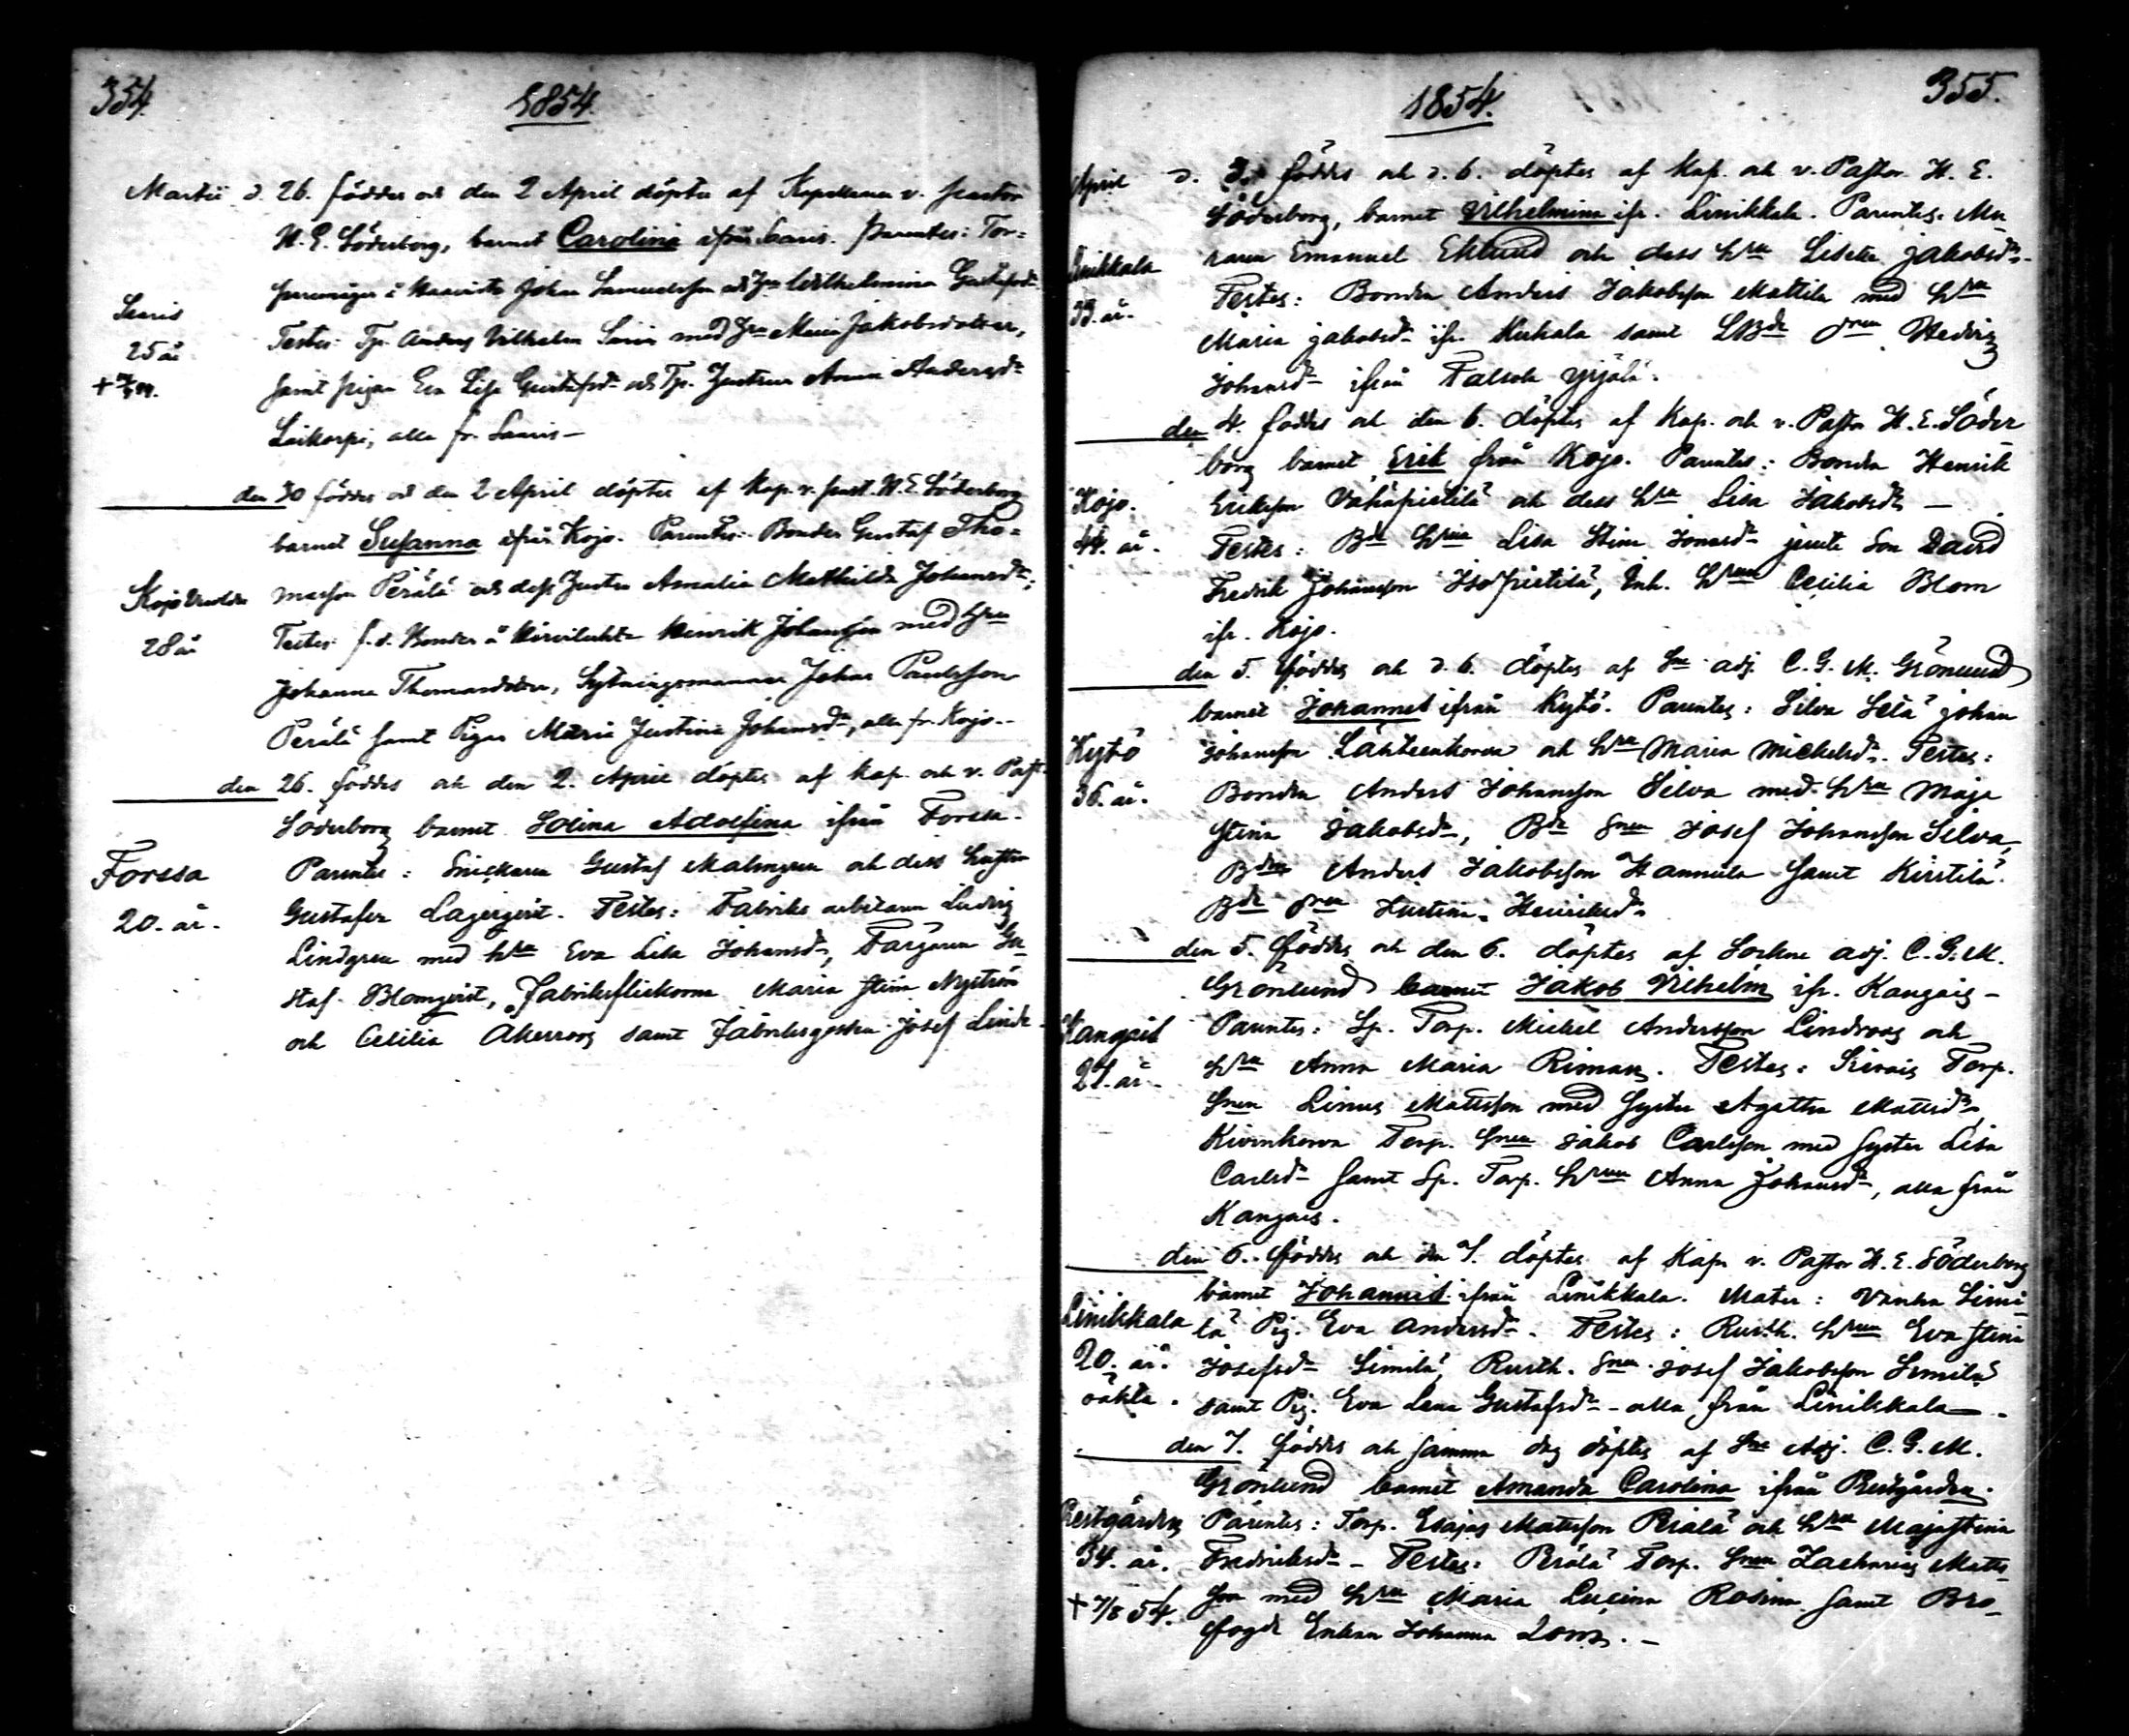 354.
1854.
Martii d. 26. föddes och den 2 April döptes af Kapellanen v. pastor
H. E. Söderborg, barnet Carolina ifrån Saaris. Parentes: Tor=
Johan Samuelsson och Hu Wilhelmina Gustafsdr
Saaris
25 år
Testes: Tp. Anders Vilhelm Saaris med Hu Maria Jakobsdotter,
samt pigan Eva Lisa Gustafsdr och Tp. Hustrun Anna Andersdr
alla fr. Saaris –
den 30 föddes och den 2 April döptes af Kap. v. past. H. E. Söderborg
barnet Susanna ifrån Kojo. Parentes: Bonden Gustaf Tho=
Kojo
28 år
masson Perälä och dess Hustru Amalia Mathilda Johansdr;
Testes: f.d. Bonden Henrik Johansson med Hru
Johanna Thomasdotter, Sytningsmannen Johan Paulsson
Perälä samt Pigan Maria Justina Johansdr, alla fr. Kojo.
den 26. föddes och den 2. April döptes af Kap. och v. Past.
Söderborg barnet Solina Adolfina ifrån Forssa.
Forssa
20. år.
Parentes: Snickaren Gustaf Malmgren och dess hustru
Gustafva Lagerqvist. Testes: Fabriks arbetaren Ludvig
Lindgren med hru Eva Lisa Johansdr, Färgaren Gu-
staf Blomqvist, Fabriksflickorna Maria Stina Nyström
och Cecilia Akerroos samt Fabriksgossen Josef Linde-
355.
1854.
April d. 3. föddes och d. 6. döptes af Kap. och v. Pastor H. E.
Söderborg, barnet Vilhelmina ifr. Linikkala. Parentes: Mu-
Linikkala
33. år.
raren Emanuel Eklund och dess hru Liseta Jakobsdr.
Testes: Bonden Anders Jakobsson Mattila med hru
Maria Jakobsdr ifr. samt Hedvig
Johansdr ifrån Yrjölä.
den 4. föddes och den 6. döptes af Kap. och v. Pastor H. E. Söder
borg barnet Erik från Kojo. Parentes: Bonden Henrik
Kojo.
44. år.
Eriksson Vähäpietilä och dess hru Lisa Jakobsdr –
Testes: Bde hrun Lisa Stina Jonasdr jemte Son David
Fredrik Johansson Isopietilä, Enk. hrun Cecilia Blom
ifr. Kojo.
den 5. föddes och d. 6. döptes af Sne adj. C. G. M. Grönlund
barnet Johannes ifrån Kytö. Parentes: Silva Johan
Kytö
36. år.
Johansson Lähteenkorva och hru Maria Michelsdr. Testes:
Bonden Anders Johansson Silva med hru Maja
Stina Jakobsdr, Bde Snen Josef Johansson Silva,
Bden Anders Jakobsson Hannula samt Kirstilä
Bde Justina Henriksdr
den 5. föddes och den 6. döptes af Sockne adj. C. G. M.
Grönlund barnet Jakob Vilhelm ifr. Kangais –
Kangais
27. år.
Parentes: Sp. Torp. Michel Andersson Lindroos och
hru Anna Maria Riman. Testes: Torp.
Snen Linus Mattsson med Syster Agatha Mattsdr,
Kivenkorva Torp. Snen Jakob Carlsson med Syster Lisa
Carlsdr samt Sp. Torp. hrun Anna Johansdr, alla från
Kangais.
den 6. föddes och den 7. döptes af Kap. v. Pastor H. E. Söderborg
barnet Johannes ifrån Linikkala. Mater: Vanha Simi
Linikkala
20. år.
oäkta.
lä Pig. Eva Andersdr. Testes: Rusth. hrun Eva Stina
Josefsdr Similä, Rusth. Snen Josef Jakobsson Similä
samt Pig. Eva Lena Gustafsdr – alla från Linikkala.
den 7. föddes och samma dag döptes af Sne Adj. C. G. M.
Grönlund barnet Amanda Carolina ifrån Prestgården.
Prestgården
34. år.
+ 7/8 54.
Parentes: Torp. Esajas Mattsson Perälä och hru Maja Stina
Fredriksdr – Testes: Perälä Torp. Snen Zacharias Matts
son med hru Maria Lucina Rosina samt Bro-
fogde Enkan Johanna